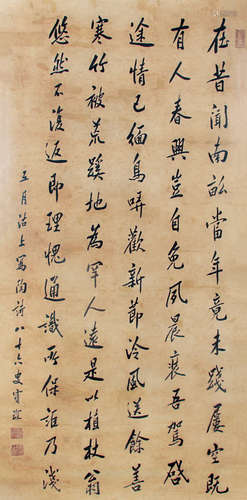 在昔聞南畝當年竟未踐屢空既
有人春興豈自免夙晨裝吾駕啟
途情已緬鳥哢歡新節泠風送餘善
寒竹被荒蹊地為罕人遠是以植杖翁
悠然不復返即理愧通識所保詎乃淺
五月沽上寫陶詩八十六叟